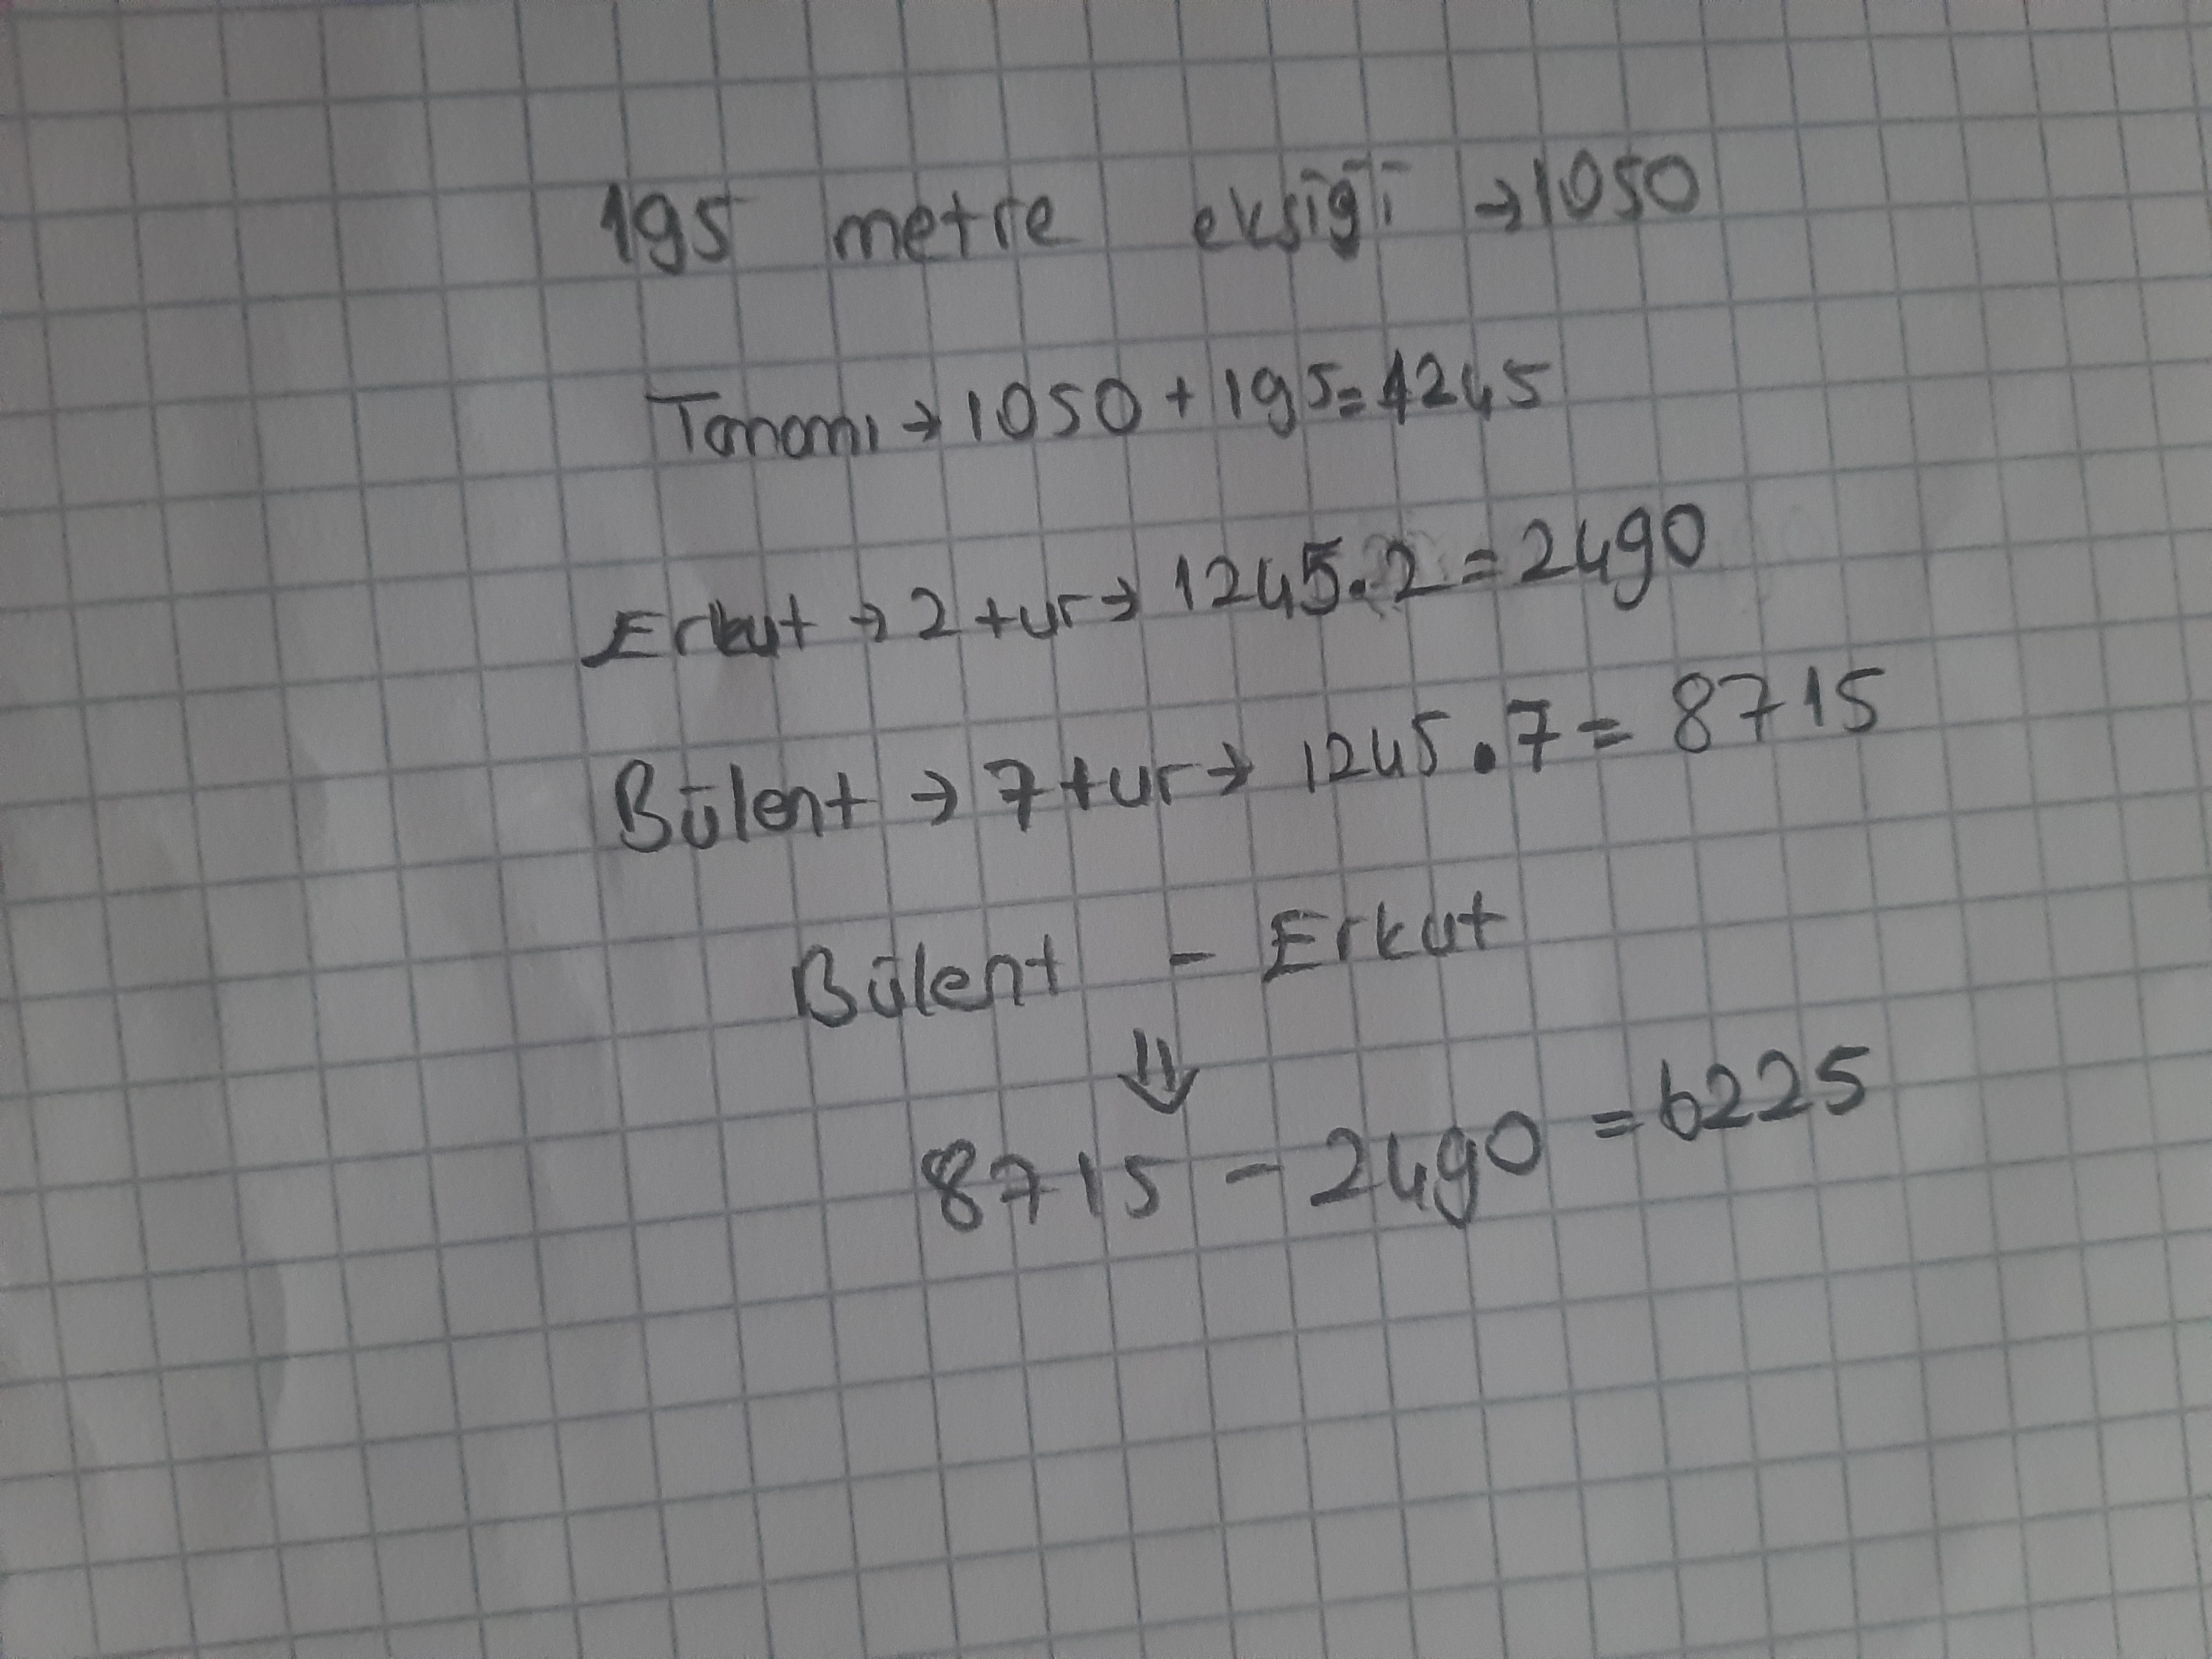 195 metre eksiği → 1050
Tamamı → 1050 + 195 = 1245
Erkut → 2 tur → 1245.2 = 2490
Bülent → 7 tur → 1245.7 = 8715
Bülent - Erkut
⇓
8715 - 2490 = 6225